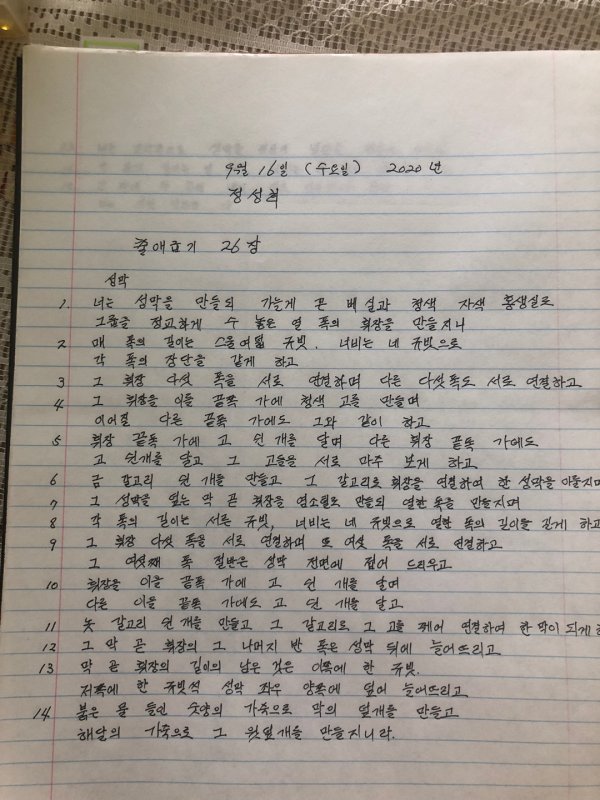 9월 16일 (수요일) 2020년
정성희
출애굽기 26장
성막
1. 너는 성막을 만들되 가늘게 꼰 베실과 청색 자색 홍색실로
그룹을 정교하게 수 놓은 열 폭의 휘장을 만들지니
2 매 폭의 길이는 스물여덟 규빗, 너비는 네 규빗으로
각 폭의 장단을 같게 하고
3 그 휘장 다섯 폭을 서로 연결하며 다른 다섯폭도 서로 연결하고
4 그 휘장을 이을 끝폭 가에 청색 고를 만들며
이어질 다른 끝폭 가에도 그와 같이 하고
5 휘장 끝폭 가에 고 쉰 개를 달며 다른 휘장 끝폭 가에도
고 쉰개를 달고 그 고들을 서로 마주 보게 하고
6 금 갈고리 쉰 개를 만들고 그 갈고리로 휘장을 연결하여 한 성막을 이룰지며
7 그 성막을 덮는 막 곧 휘장을 염소털로 만들되 열한 폭을 만들지며
8 각 폭의 길이는 서른 규빗, 너비는 네 규빗으로 열한 폭의 길이를 같게 하고
9 그 휘장 다섯 폭을 서로 연결하며 또 여섯 폭을 서로 연결하고
그 여섯째 폭 절반은 성막 전면에 접어 드리우고
10 휘장을 이을 끝폭 가에 고 쉰 개를 달며
다른 이을 끝폭 가에도 고 쉰 개를 달고
11 놋 갈고리 쉰 개를 만들고 그 갈고리로 그 고를 꿰어 연결하여 한 막이 되게
12 그 막 곧 휘장의 그 나머지 반 폭은 성막 뒤에 늘어뜨리고
13 막 곧 휘장의 길이의 남은 것은 이쪽에 한 규빗,
저쪽에 한 규빗씩 성막 좌우 양쪽에 덮어 늘어뜨리고
14 붉은 물 들인 숫양의 가죽으로 막의 덮개를 만들고
해달의 가죽으로 그 윗덮개를 만들지니라.